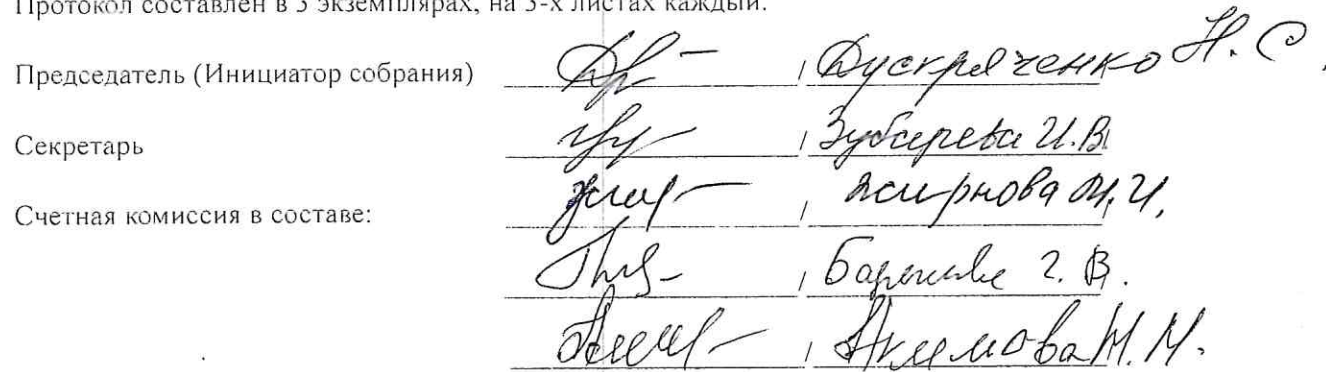 Протокол составлен в 3 экземплярах, на 3-х листах каждый.
Председатель (Инициатор собрания) / Дускряченко Н. С.
Секретарь / Зубарева И.В.
Счетная комиссия в составе: / Жирнова М.И.
/ Г. В.
/ Акимова М. М.